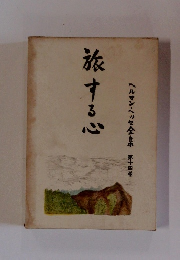 ヘルマン・ヘッセ全集 第十四巻
旅する心